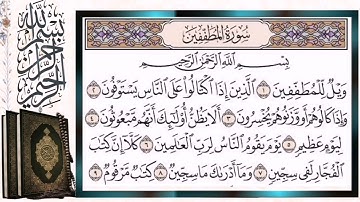 سُورَةُ المُطَفِّفِينَ
بِسْمِ اللَّهِ الرَّحْمَٰنِ الرَّحِيمِ
وَيْلٌ لِّلْمُطَفِّفِينَ ١ الَّذِينَ إِذَا اكْتَالُوا عَلَى النَّاسِ يَسْتَوْفُونَ ٢
وَإِذَا كَالُوهُمْ أَو وَّزَنُوهُمْ يُخْسِرُونَ ٣ أَلَا يَظُنُّ أُولَٰئِكَ أَنَّهُم مَّبْعُوثُونَ ٤
لِيَوْمٍ عَظِيمٍ ٥ يَوْمَ يَقُومُ النَّاسُ لِرَبِّ الْعَالَمِينَ ٦ كَلَّا إِنَّ كِتَابَ
الْفُجَّارِ لَفِي سِجِّينٍ ٧ وَمَا أَدْرَاكَ مَا سِجِّينٌ ٨ كِتَابٌ مَّرْقُومٌ ٩
بسم الله الرحمن الرحيم